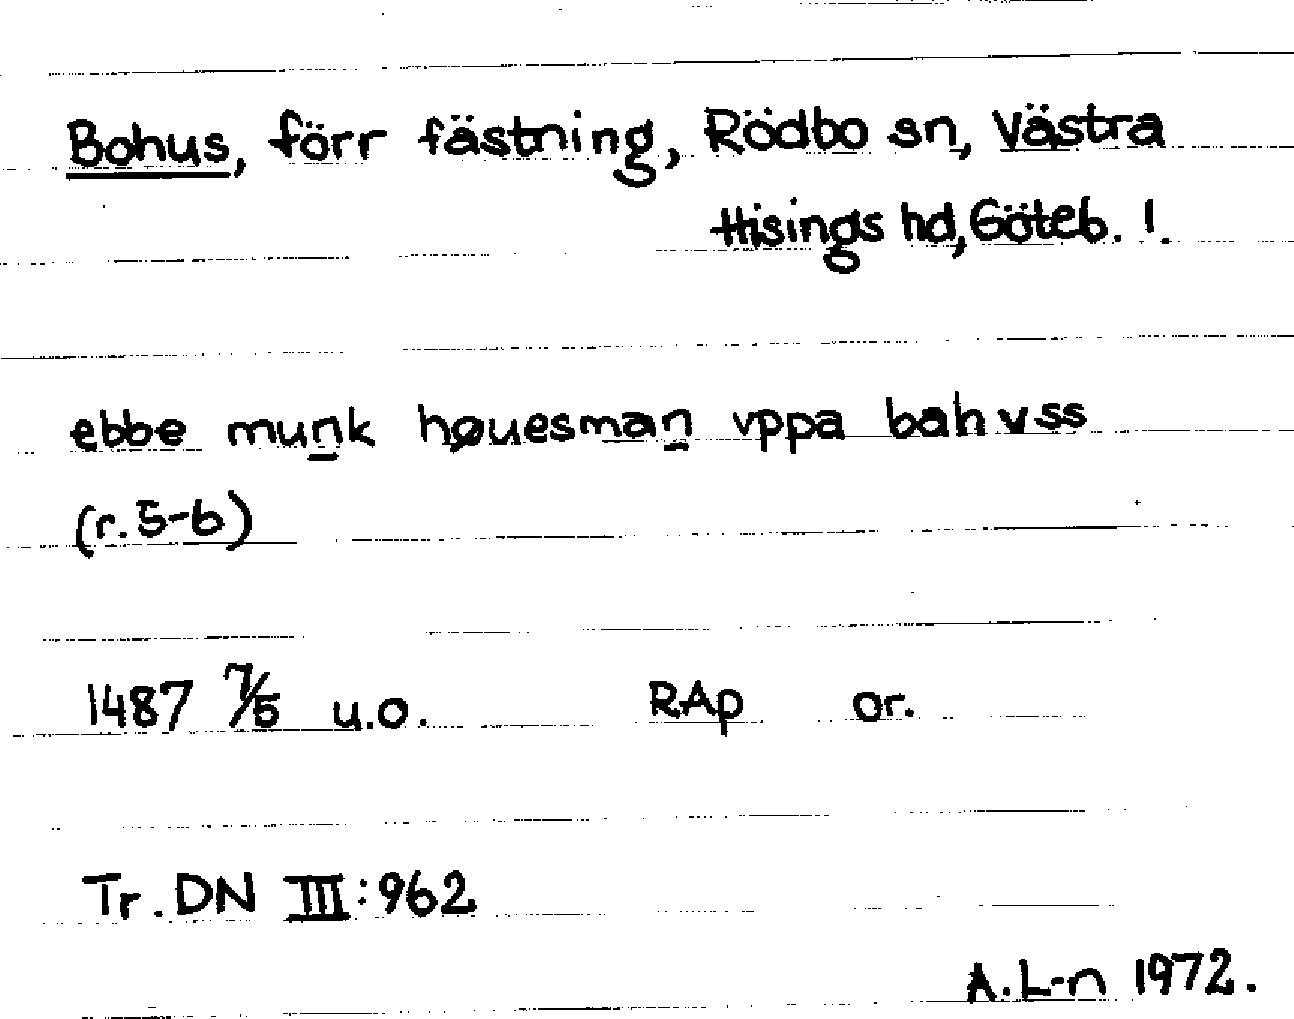 Bohus, förr fästning, Rödbo sn, Västra
Hisings hd, Göteb. l.
ebbe munk høuesman vppa bahvss
(r. 5-6)
1487 7/5 u.o. RAp or.
Tr. DN III:962
A. L-n 1972.